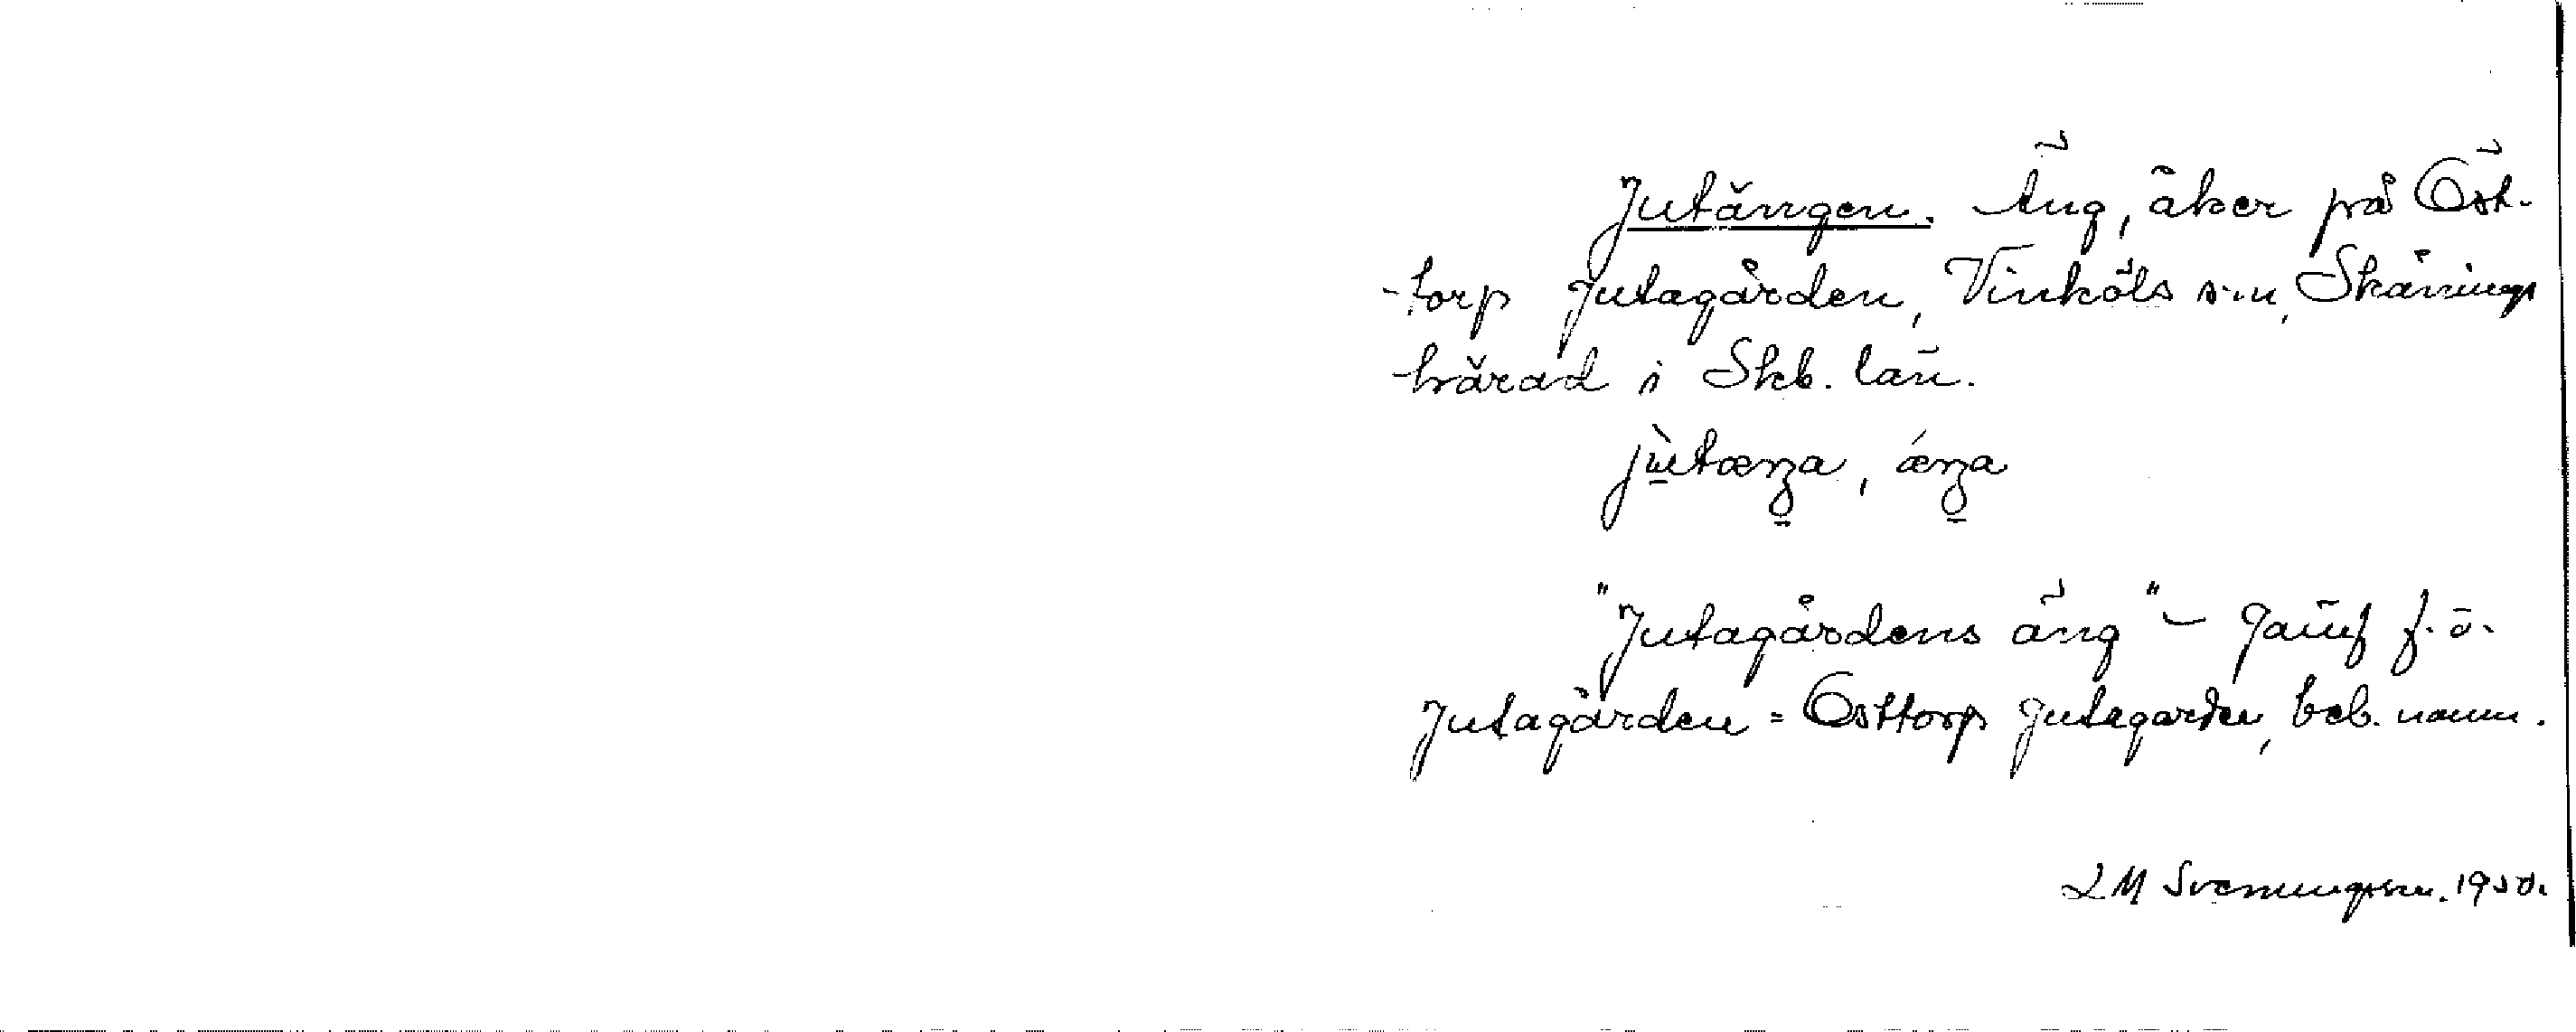 Jutängen. Äng, åker på Öst-
-torp Jutagården, Vinköls s:n, Skånings
-härad i Skb. län.
jùtæŋa, ǽŋa
"Jutagårdens äng" – Jämf f. ö.
Jutagården = Östtorp Jutagården, beb. namn.
L M Svenungsson. 1950.